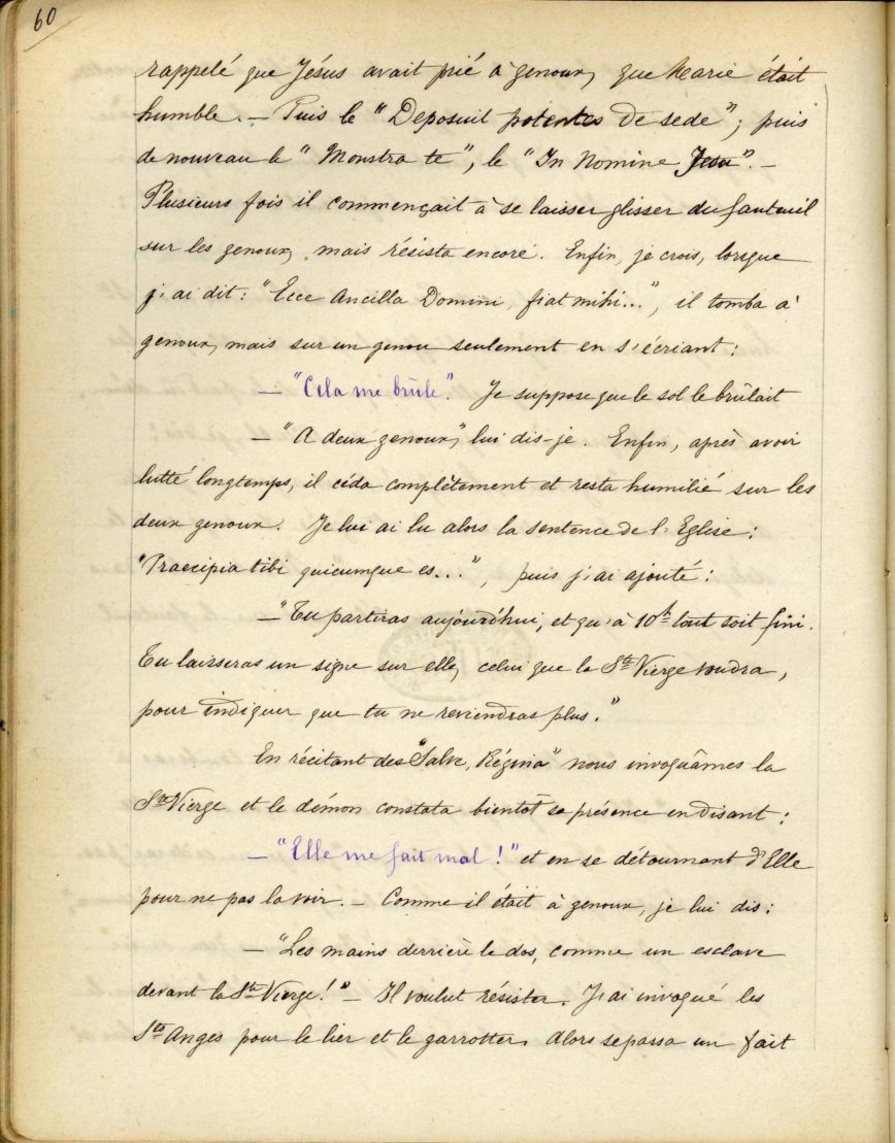 60
rappelé que Jésus avait prié à genoux, que Marie était
humble. — Puis le "Deposuit potentes de sede"; puis
de nouveau le "Monstra te", le "In Nomine Jesu". —
Plusieurs fois il commençait à se laisser glisser du fauteuil
sur les genoux, mais résista encore. Enfin, je crois, lorsque
j'ai dit: "Ecce Ancilla Domini, fiat mihi...", il tomba à
genoux, mais sur un genou seulement en s'écriant:
— "Cela me brûle". Je suppose que le sol le brûlait
— "A deux genoux," lui dis-je. Enfin, après avoir
lutté longtemps, il céda complètement et resta humilié sur les
deux genoux. Je lui ai lu alors la sentence de l'Eglise:
"Praecipia tibi quicumque es...", puis j'ai ajouté:
— "Tu partiras aujourd'hui, et qu'à 10h tout soit fini.
Tu laisseras un signe sur elle, celui que la Ste Vierge voudra,
pour indiquer que tu ne reviendras plus."
En récitant des "Salve, Régina" nous invoquâmes la
Ste Vierge et le démon constata bientôt sa présence en disant:
— "Elle me fait mal!" et en se détournant d'Elle
pour ne pas la voir. — Comme il était à genoux, je lui dis:
— "Les mains derrière le dos, comme un esclave
devant la Ste Vierge!" — Il voulut résister. J'ai invoqué les
Sts Anges pour le lier et le garrotter. Alors se passa un fait